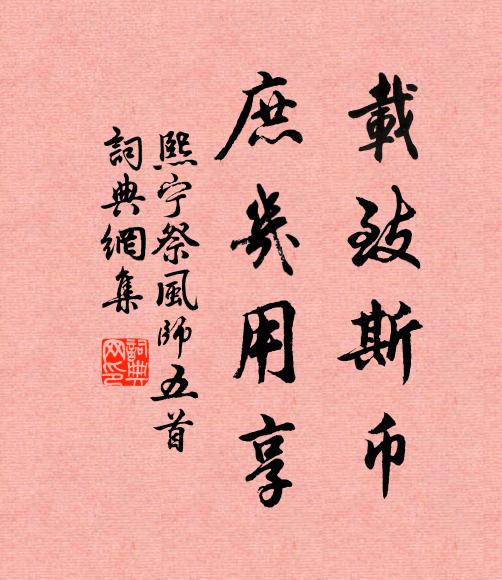 載致斯币
庶幾用享
熙宁祭風師五首
詞典網集
詞典网印